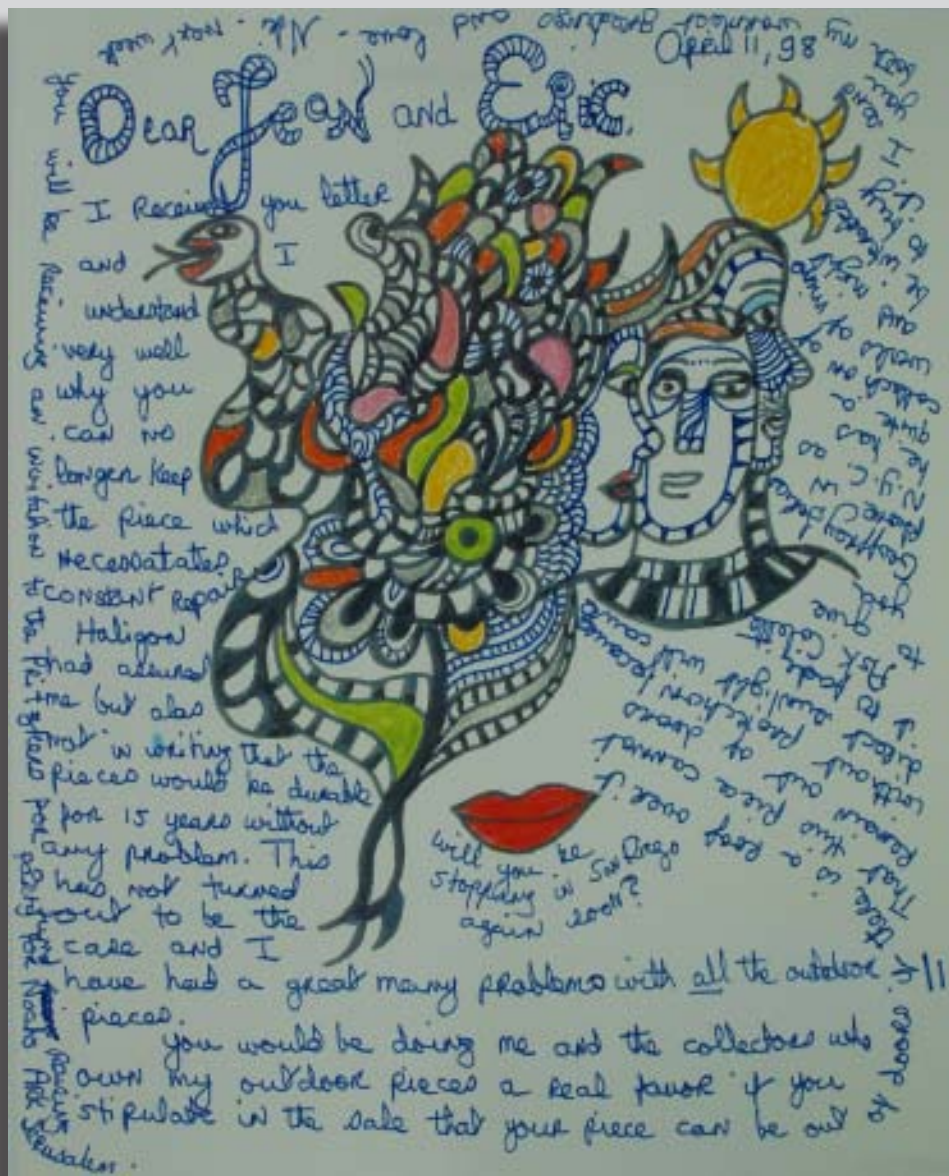 April 11, 98
Dear Jean and Eric,
I Received you letter
and I
understand
very well
why you
can no
longer keep
the piece which
necessatates
constant repair
Haligon
had assured
me but alas
not in writing that the
pieces would be durable
for 15 years without
any problem. This
has not turned
out to be the
case and I
have had a great many problems with all the outdoor
pieces.
You would be doing me and the collectors who
own my outdoor pieces a real favor if you
stipulate in the sale that your piece can be out
of doors if
there is a roof over it
That this piece cannot
Remain out of doors
without protection because
direct sunlight will cause
it to fade
Ask Colette
to give you
Geoffrey
phone in
N.Y.C. as
he has a
quite
collection of my
works and might
be interested
to buy it.
I send you both my warmest greetings and love - Niki. Next week
you will be Receiving an invitation to the Pritzkers for
party for Noahs Ark Jerusalem.
will you be
stopping in San Diego
again soon?